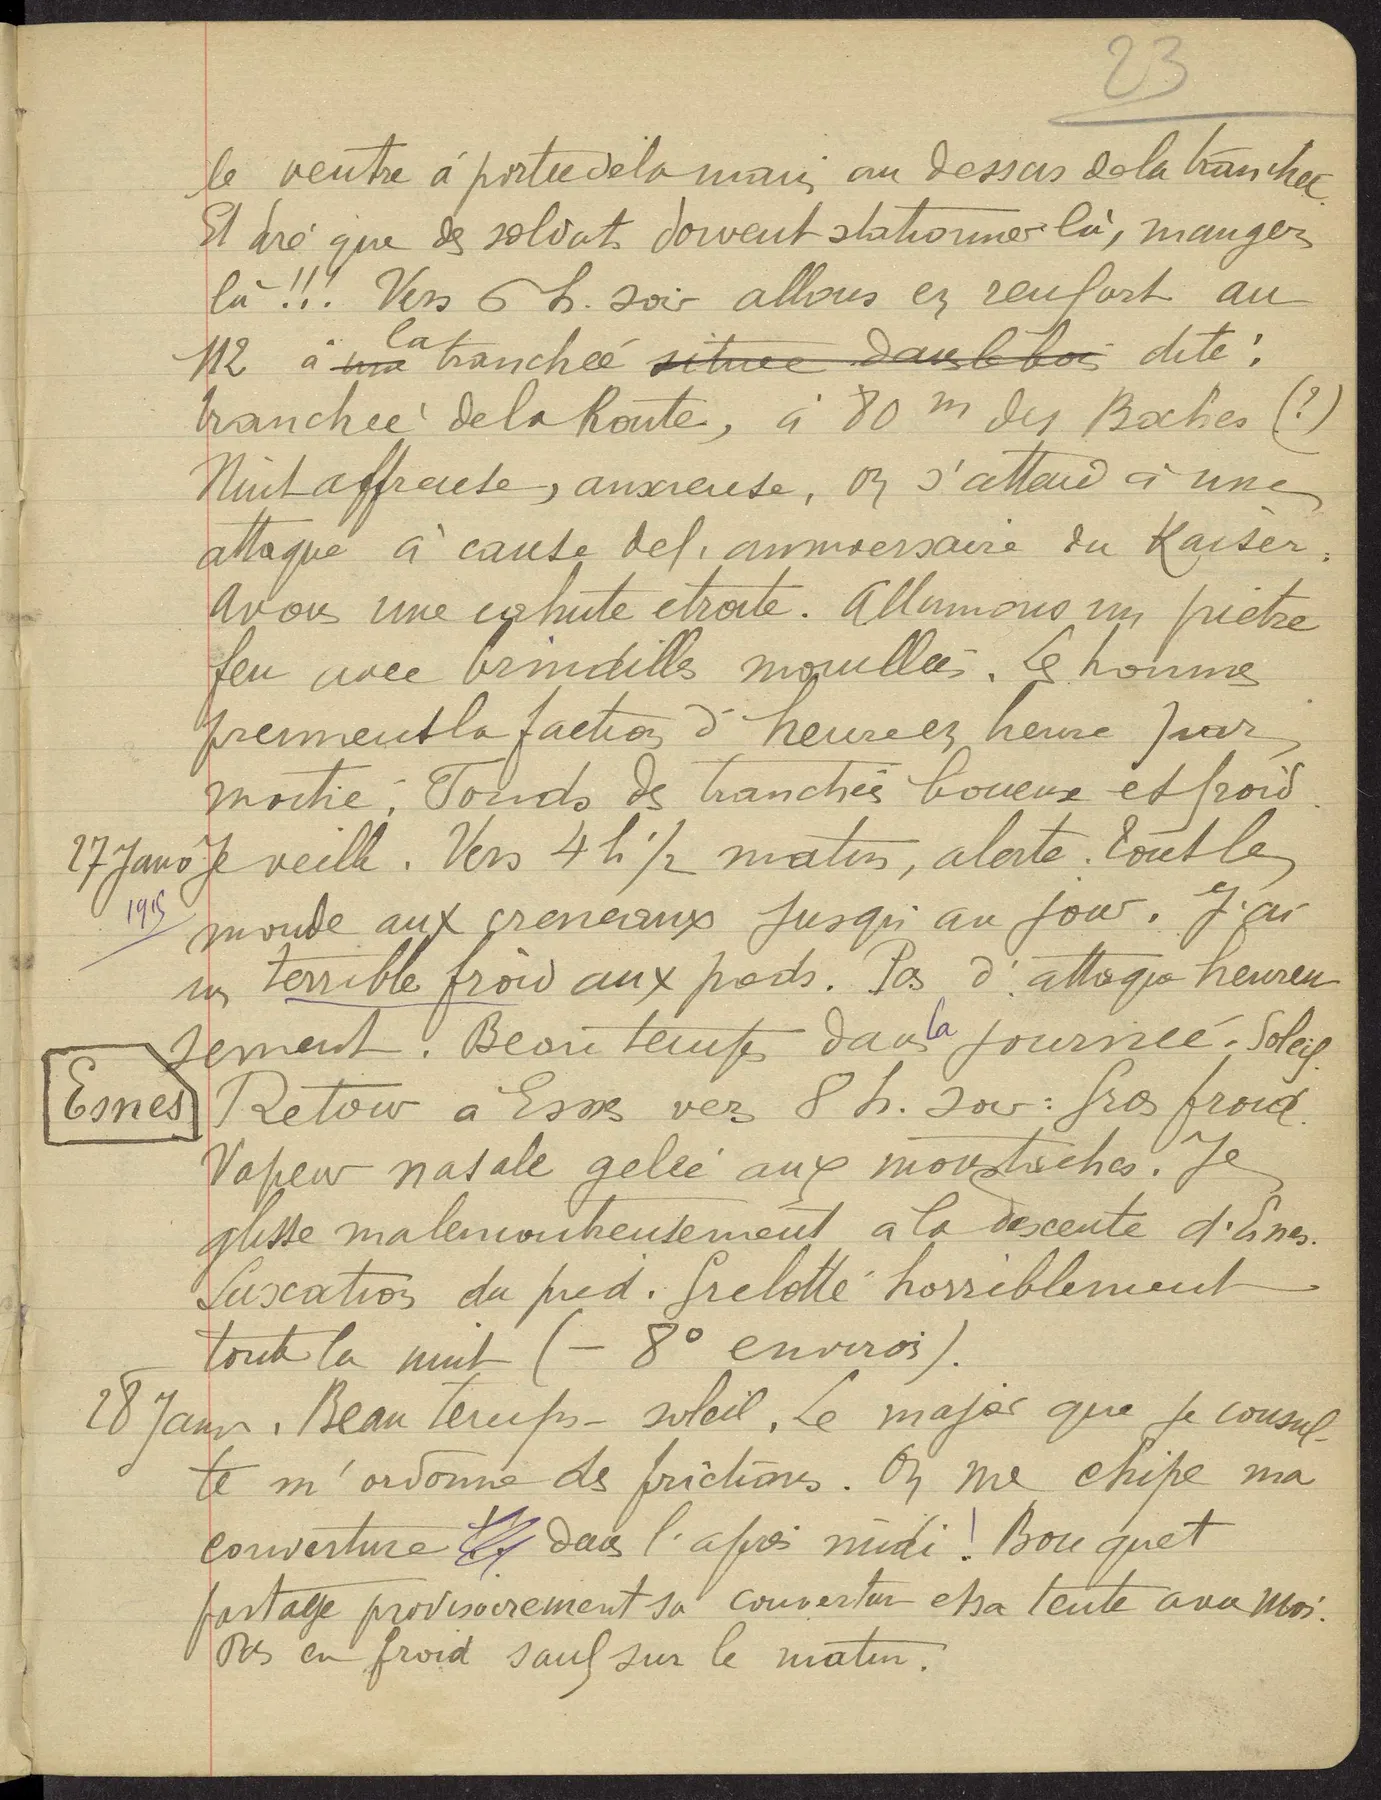 23
le ventre à portée de la main, au dessus de la tranchée.
Et dire que des soldats doivent stationner là, manger
là !!! Vers 6 h. soir allons en renfort au
112 à una la tranchée située dans le bois dite :
tranchée de la Route, à 80 m des Boches (?)
Nuit affreuse, anxieuse, on s'attend à une
attaque à cause de l'anniversaire du Kaiser.
Avons une cahute étroite. Allumons un piètre
feu avec brindilles mouillées. Les hommes
prennent la faction d'heure en heure par
moitié. Fonds des tranchées boueux et froid.
27 Janv Je veille. Vers 4 h 1/2 matin, alerte. Tout le
1915
monde aux creneaux jusqu'au jour. J'ai
un terrible froid aux pieds. Pas d'attaque heureu
sement. Beau temps dans la journée. Soleil.
Esnes
Retour à Esnes vers 8 h. soir : gros froid.
Vapeur nasale gelée aux moustaches. Je
glisse malencontreusement a la descente d'Esnes.
Luxation du pied. Grelotté horriblement
toute la nuit (- 8° environ).
28 Janv. Beau temps - soleil. Le major que je consul-
te m'ordonne des frictions. On me chipe ma
couverture dans l'après midi ! Bouquet
partage provisoirement sa couverture et sa tente avec moi.
Pas eu froid sauf sur le matin.